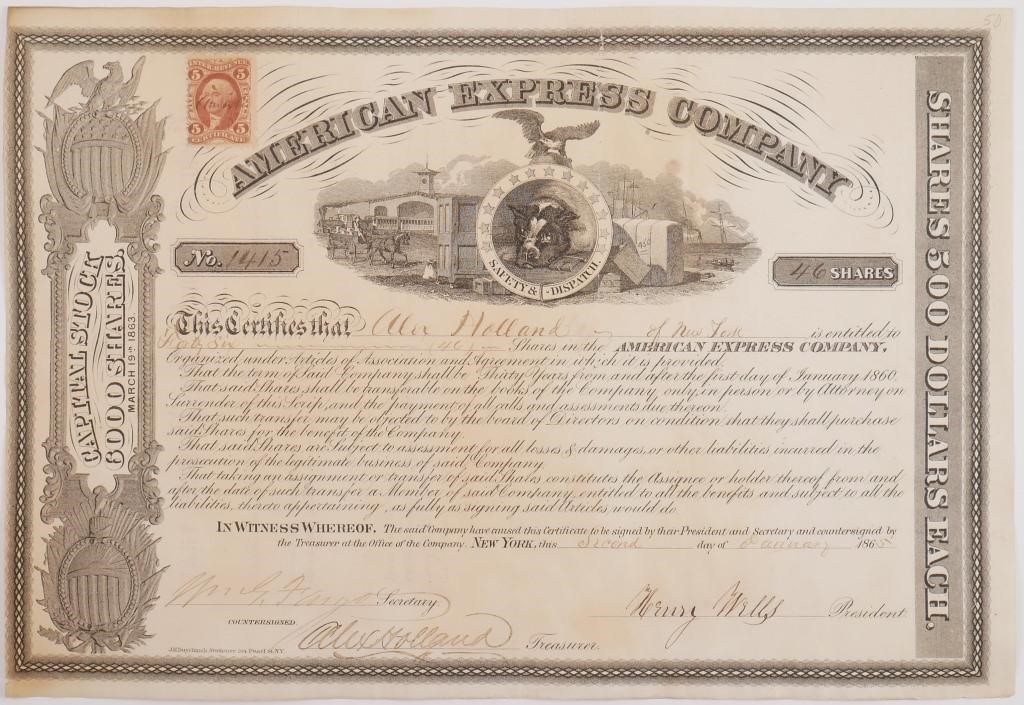 50
INTER. REVENUE
5 5
5 5
CERTIFICATE
AMERICAN EXPRESS COMPANY
SAFETY & DISPATCH.
No. 1415
46 SHARES
CAPITAL STOCK
6000 SHARES.
MARCH 19th 1863.
SHARES 500 DOLLARS EACH.
This Certifies that Alex Holland of New York is entitled to
Forty Six (46) Shares in the AMERICAN EXPRESS COMPANY,
Organized under Articles of Association and Agreement in which it is provided
That the term of said Company shall be Thirty Years from and after the first day of January 1860.
That said Shares shall be transferable on the books of the Company, only, in person or by Attorney on
Surrender of this Scrip, and the payment of all calls and assessments due thereon.
That such transfer may be objected to by the board of Directors on condition that they shall purchase
said Shares for the benefit of the Company.
That said Shares are Subject to assessment for all losses & damages, or other liabilities incurred in the
prosecution of the legitimate business of said Company
That taking an assignment or transfer of said Shares constitutes the Assignee or holder thereof from and
after the date of such transfer a Member of said Company, entitled to all the benefits and subject to all the
liabilities, thereto appertaining, as fully as signing said Articles, would do.
IN WITNESS WHEREOF. The said Company have caused this Certificate to be signed by their President and Secretary and countersigned by
the Treasurer at the Office of the Company. NEW YORK, this Second day of January 1865
Wm G. Fargo Secretary.
Henry Wells President
COUNTERSIGNED.
Alex Holland Treasurer.
Stationer 304 Pearl St. N.Y.